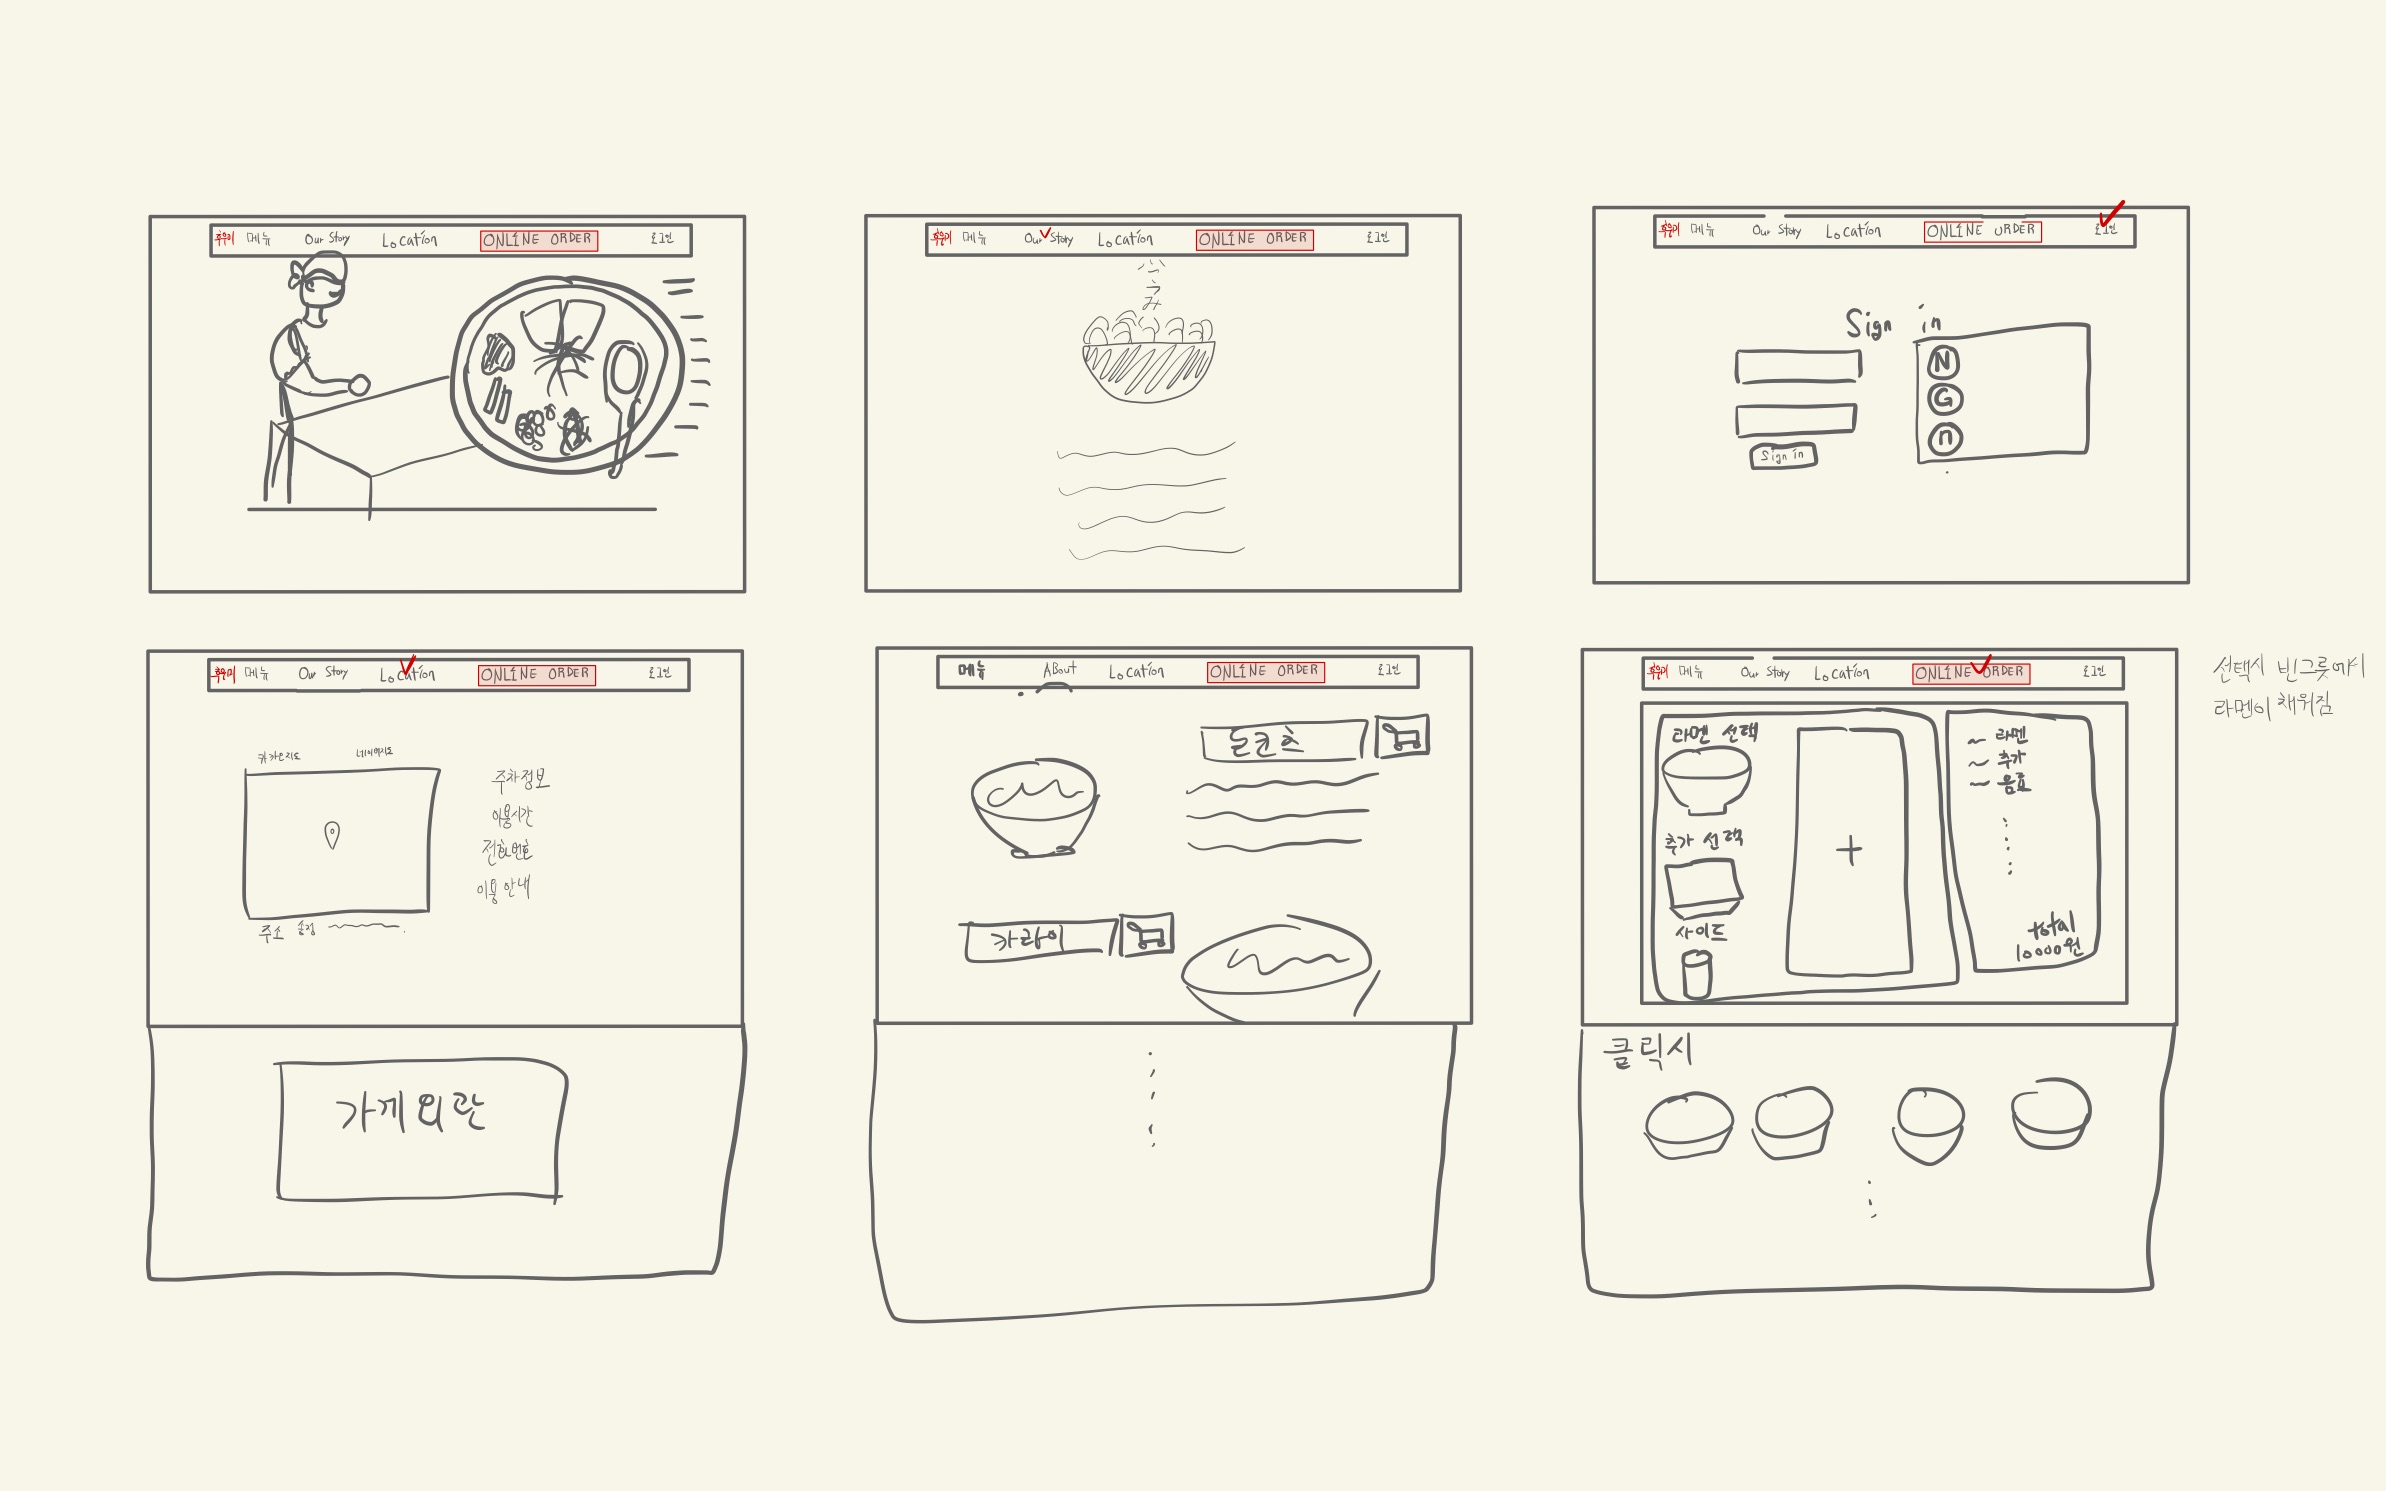 후우미 메뉴 Our Story Location ONLINE ORDER 로그인
후우미 메뉴 Our Story Location ONLINE ORDER 로그인
후우미 메뉴 Our Story Location ONLINE ORDER 로그인
Sign in
N
G
n
Sign in
후우미 메뉴 Our Story Location ONLINE ORDER 로그인
카카오지도 네이버지도
주차정보
이용시간
전화번호
이용 안내
주소
가게 외관
메뉴 ABout Location ONLINE ORDER 로그인
돈코츠
카라이
후우미 메뉴 Our Story Location ONLINE ORDER 로그인
라멘 선택
추가 선택
사이드
+
라멘
추가
음료
total
10000원
클릭시
선택시 빈그릇에서
라멘이 채워짐